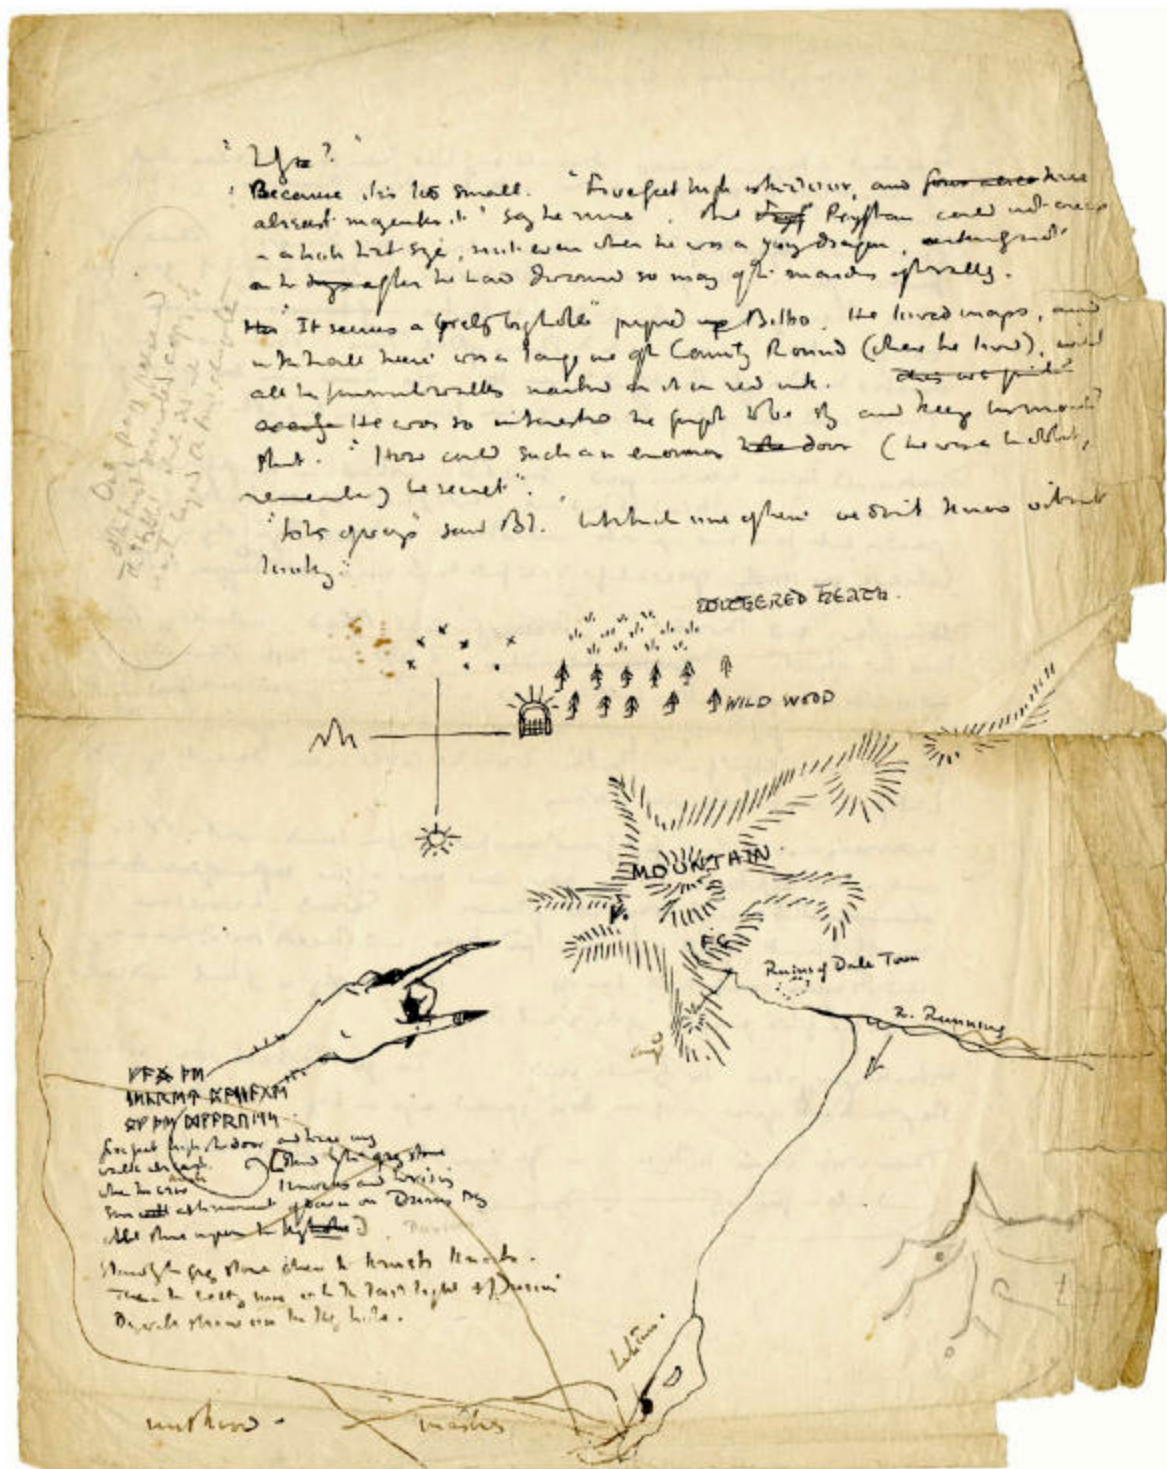 " Why? "
" Because it is too small. " Five feet high is the door, and ~~four abreast~~ three
abreast may enter it " say the runes. But Pryftan could not creep
in a hole that size, not even when he was a young dragon, certainly not
after he had devoured so many of the maidens of the valley.
" It seems a great big hole " piped up Bilbo. He loved maps, and
in the hall there was a large one of the County Round (where he lived), with
all his favourite walks marked on it in red ink.
He was so interested he forgot to be shy and keep his mouth
shut. " How could such an enormous door ( he was a hobbit,
remember ) be secret ".
" Lots of ways " said Bl. " but which one of them we don't know without
looking "
WITHERED HEATH.
WILD WOOD
MOUNTAIN
FG
Ruins of Dale Town
R. Running
ᚠᚫᚷ ᚦᛖ
ᛋᛖᚳᚱᛖᛏ ᛈᚫᛋᛋᚫᚷᛖ
ᚩᚠ ᚦᛖ ᛞᚹᚫᚱᚢᛖᛋ
five feet high is the door and three may
walk abreast
Stand by the grey stone
when the crow knocks and the rising
sun at the moment of dawn on Durins Day
will shine upon the keyhole
Stand by the grey stone when the thrush knocks.
Then the setting sun on the last light of Durin's
Day will shine on the key hole.
Lake Town.
mirkwood -
marshes